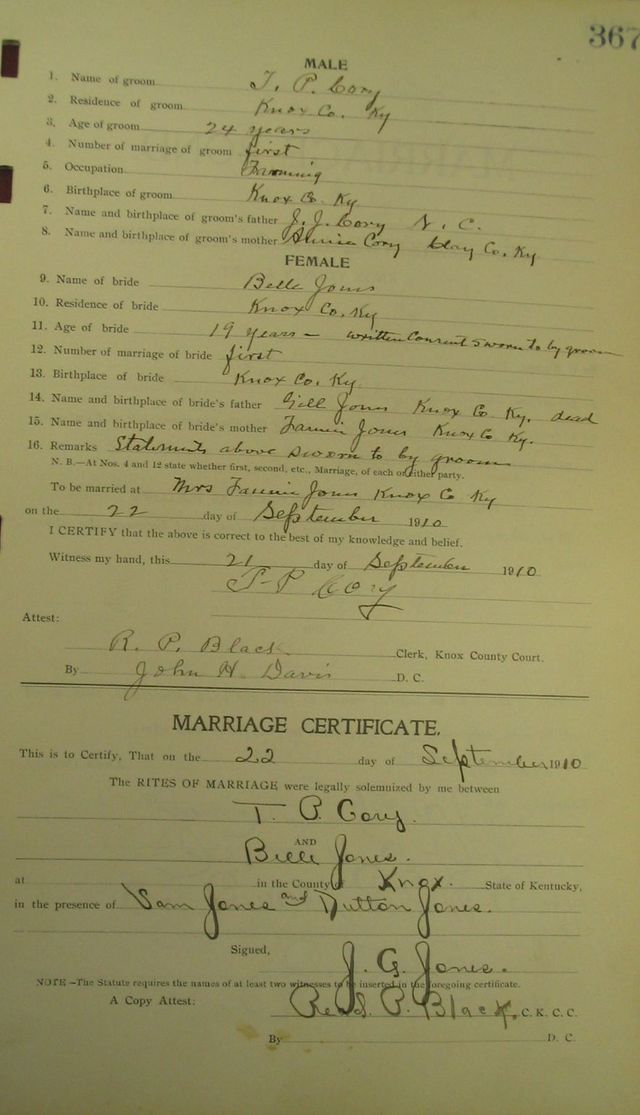 367
MALE
1. Name of groom T. P. Cory
2. Residence of groom Knox Co. Ky
3. Age of groom 24 years
4. Number of marriage of groom first
5. Occupation Farming
6. Birthplace of groom Knox Co. Ky
7. Name and birthplace of groom's father J. J. Cory N. C.
8. Name and birthplace of groom's mother Cory Clay Co. Ky
FEMALE
9. Name of bride Belle Jones
10. Residence of bride Knox Co. Ky
11. Age of bride 19 years — written Consent sworn to by groom
12. Number of marriage of bride first
13. Birthplace of bride Knox Co. Ky
14. Name and birthplace of bride's father Gill Jones Knox Co Ky. dead
15. Name and birthplace of bride's mother Fannie Jones Knox Co Ky.
16. Remarks Statements above sworn to by groom
N. B.—At Nos. 4 and 12 state whether first, second, etc., Marriage, of each or either party.
To be married at Mrs Fannie Jones Knox Co Ky
on the 22 day of September 1910
I CERTIFY that the above is correct to the best of my knowledge and belief.
Witness my hand, this 21 day of September 1910
T P Cory
Attest:
R. P. Black Clerk, Knox County Court.
By John H. Davis D. C.
MARRIAGE CERTIFICATE.
This is to Certify, That on the 22 day of September 1910
The RITES OF MARRIAGE were legally solemnized by me between
T. P. Cory.
AND
Belle Jones.
at in the County of Knox. State of Kentucky,
in the presence of Sam Jones and Dutton Jones.
Signed,
J. G. Jones.
NOTE—The Statute requires the names of at least two witnesses to be inserted in the foregoing certificate.
A Copy Attest: Read P. Black, C. K. C. C.
By D. C.